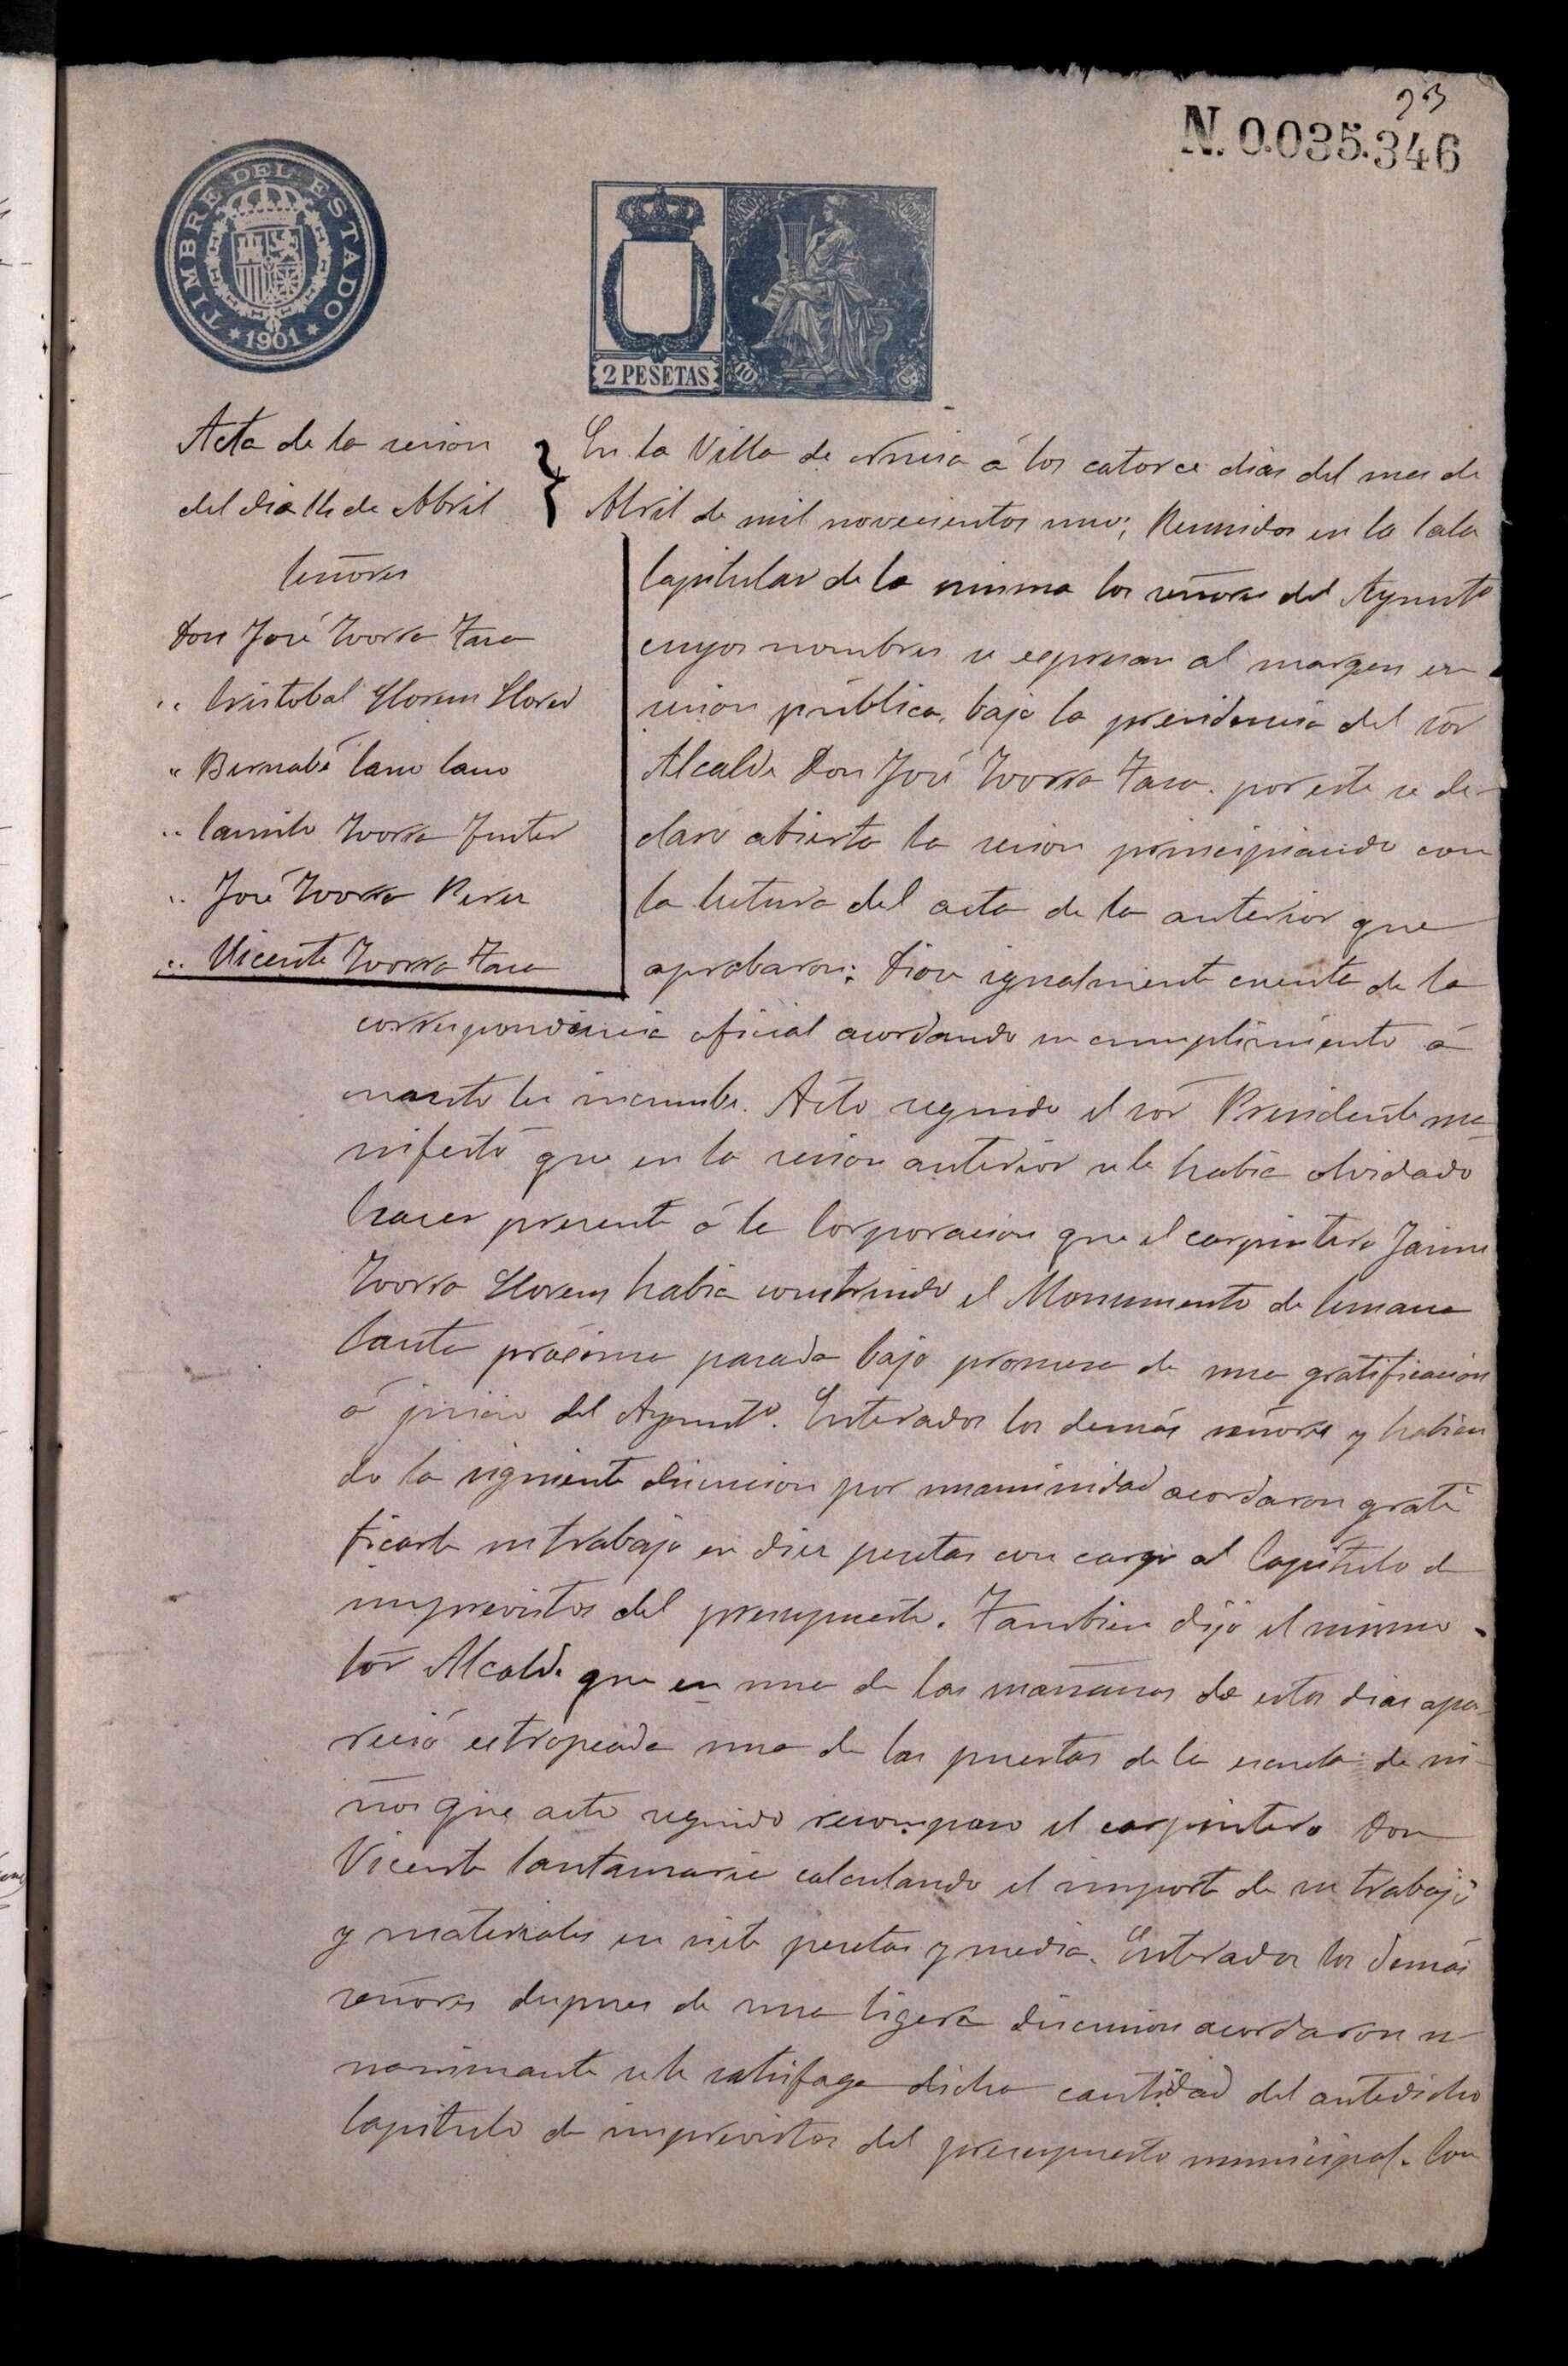 23
N. 0.035.346
TIMBRE DEL ESTADO
1901
2 PESETAS
10 Cs
Acta de la sesion
del dia 14 de Abril
Señores
Don José Zorra Fara
" Cristobal Llorens Llored
" Bernabé Cano Cano
" Camilo Zorra Fuster
" José Zorra Perez
" Vicente Zorra
En la Villa de á los catorce dias del mes de
Abril de mil novecientos uno; Reunidos en la Sala
Capitular de la misma los señores del Ayuntº
cuyos nombres se espresan al margen en
sesion pública, bajo la presidencia del sór
Alcalde Don José Zorra por este se de-
claro abierta la sesion principiando con
la letura del acta de la anterior que
aprobaron; Diose igualmente cuenta de la
correspondencia oficial acordando su cumplimiento á
cuanto les incumbe. Acto seguido el sór Presidente ma-
nifestó que en la sesion anterior se le habia olvidado
hacer presente á la Corporacion que el carpintero Jaime
Zorra Llorens habia construido el Monumento de Semana
Santa proxima pasada bajo promesa de una gratificacion
á juicio del Ayuntº. Enterados los demás señores y habien
do la siguiente discusion por unanimidad acordaron grati
ficarle su trabajo en diez pesetas con cargo al Capitulo de
imprevistos del presupuesto. Tambien dijo el mismo
Sór Alcalde que en una de las mañanas de estos dias apa-
reció estropeada una de las puertas de la escuela de ni-
ños que acto seguido recompuso el carpintero Don
Vicente Santamaria calculando el importe de su trabajo
y materiales en siete pesetas y media. Enterados los demás
señores despues de una ligera discusion acordaron u-
nanimante se le satisfaga dicha cantidad del antedicho
Capitulo de imprevistos del presupuesto municipal. Con